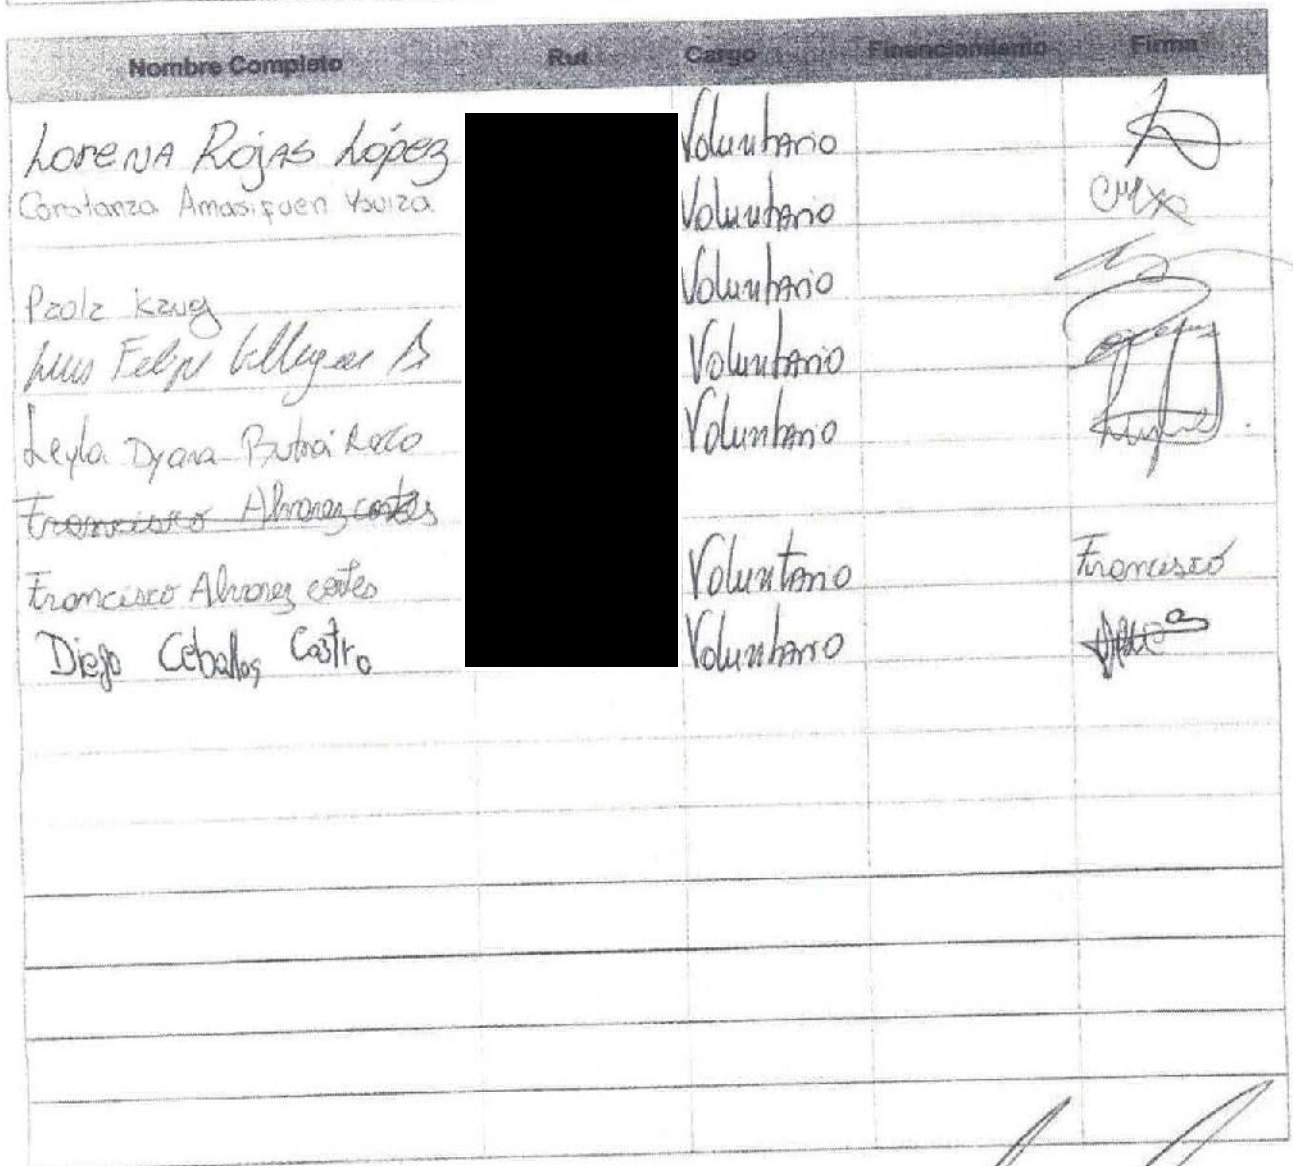 Nombre Completo Rut Cargo Financiamiento Firma
Lorena Rojas López Voluntario
Constanza Amasifuen Voluntario
Voluntario
Paola Krug
Luis Felipe Villegas Voluntario
Leyla Dyana Voluntario
Francisco Alvarez cortes
Francisco Alvarez cortes Voluntario Francisco
Diego Ceballos Castro Voluntario